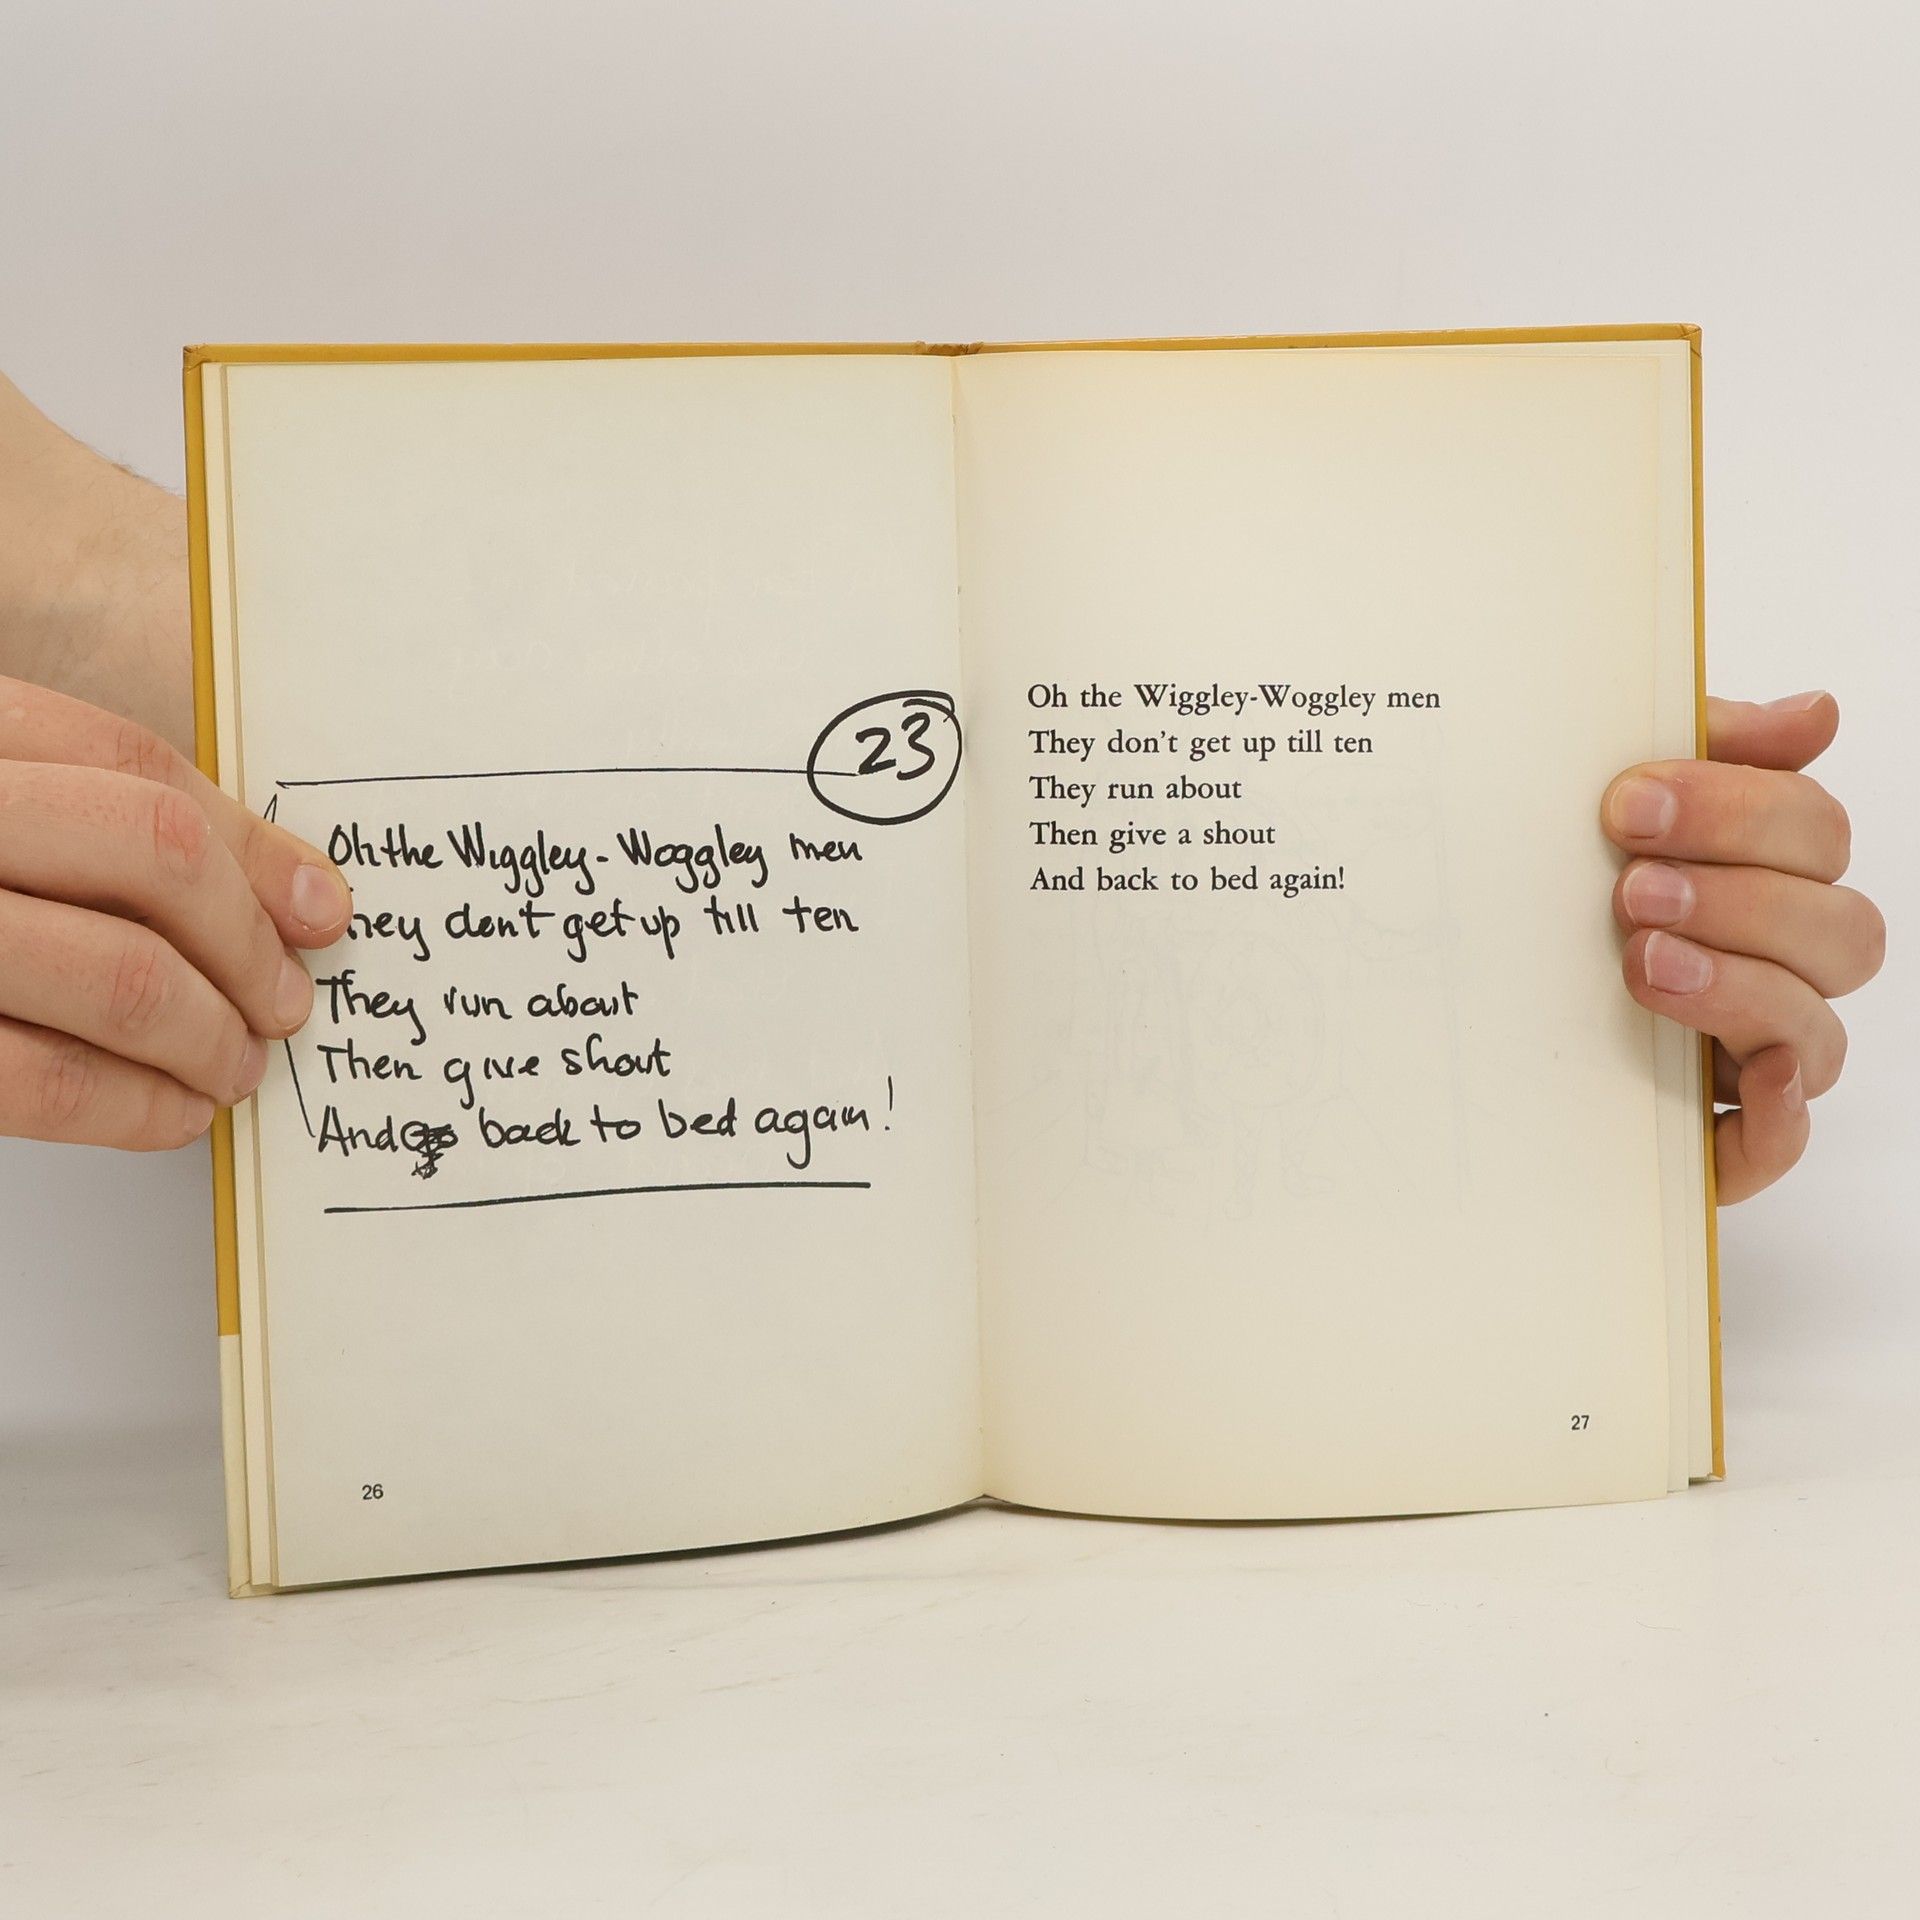 23
Oh the Wiggley-Woggley men
hey don't get up till ten
They run about
Then give shout
And back to bed again!
26
Oh the Wiggley-Woggley men
They don't get up till ten
They run about
Then give a shout
And back to bed again!
27